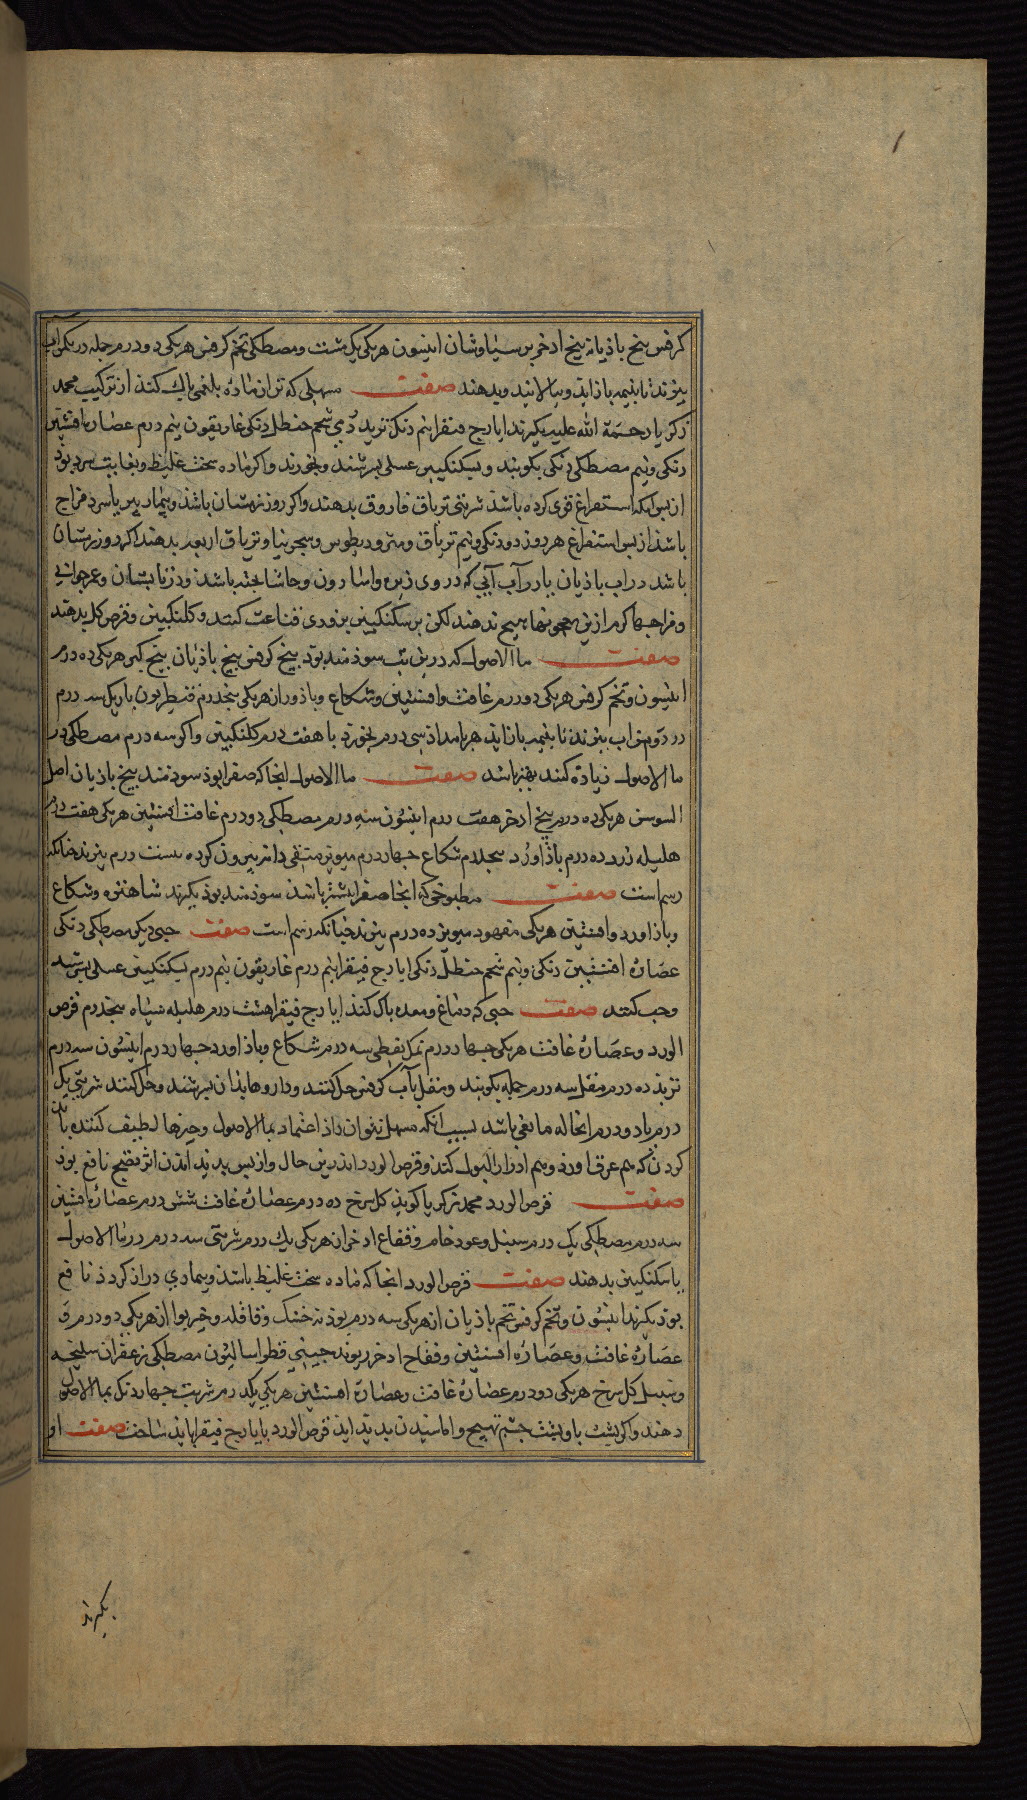 کرفس بیخ باذیانه بیخ اذخر پرسیاوشان انیسون هر یکی یک مشت و مصطکی تخم کرفس هر یکی دو درم جمله در یکمن آب
بپزند تا بنیمه باز اید و بپالایند و بدهند صفت مسهلی که تن از ماده بلغمی پاک کند از ترکیب محمد
زکریا رحمة الله علیه بکیرند ایارج فیقرا نیم دنک تربد درمی شحم حنظل دنکی غاریقون نیم درم عصاره افسنتین
دنکی و نیم مصطکی دنکی بکوبند و بسکنکبین عسلی بسرشند و بخورند و اکر ماده سخت غلیظ و بغایت سرد بوذ
از پس انکه استفراغ قوی کرده باشذ شربتی تریاق فاروق بدهند و اکر روز زمستان باشذ و بیمار پیر یا سرد مزاج
باشذ از پس استفراغ هر روز دو دنکی و نیم تریاق و مثرودیطوس و سجرنیا و تریاق اربعه بدهند اکر روز زمستان
باشد در اب باذیان یا در آب آبی که در وی زیره و اسارون و حاشا پخته باشذ و در تابستان و عمر جوانی
و مزاجها کرم ازین معجونها هیچ ندهند لکن بر سکنکبین بزوری قناعت کنند و کلنکبین و قرص کل بدهند
صفت ما الاصول که درین تب سوذمند بوذ بیخ کرفس بیخ باذیان بیخ کبر هر یکی ده درم
انیسون و تخم کرفس هر یکی دو درم غافث و افسنتین و شکاع و باذورد از هر یکی پنجدرم قنطریون باریک سه درم
در دو من اب بپزند تا بنیمه باز اید هر بامداذ سی درم بخورد با هفت درم کلنکبین و اکر سه درم مصطکی در
ما الاصول زیادة کنند بهتر باشد صفت ما الاصول انجا که صفرا بوذ سوذمند بیخ باذیان اصل
السوسن هر یکی ده درم بیخ اذخر هفت درم انیسون سه درم مصطکی دو درم غافث افسنتین هر یکی هفت درم
هلیله زرد ده درم باذاورد پنجدرم شکاع جهار درم میویز منقی دانه بیرون کرده بیست درم بپزند جنانکه
رسم است صفت مطبوخی که انجا صفرا بیشتر باشذ سوذمند بوذ بکیرند شاهتره و شکاع
و باذاورد و افسنتین هر یکی میویز ده درم بپزند جنانکه رسم است صفت حبی دیکر مصطکی دنکی
عصاره افسنتین دنکی و نیم شحم حنظل دنکی ایارج فیقرا نیم درم غاریقون نیم درم بسکنکبین عسلی بسرشند
و حب کنند صفت حبی که دماغ و معده باک کنذ ایارج فیقرا هشت درم هلیله سیاه پنجدرم قرص
الورد و عصاره غافث هر یکی جهار درم نمک نفطی سه درم شکاع و باذاورد جهار درم انیسون سه درم
تربذ ده درم مقل سه درم جمله بکوبند و مقل بآب کرفس حل کنند و داروها بذان بسرشند و حل کنند شربتی یک
درم یا دو درم انجا که مانعی باشذ بسبب انکه مسهل نتوان داذ اعتماد بما الاصول و جیزها لطیف کننده باید
کردن که هم عرق اورد و هم ادرار البول کند و قرص الورد اندرین حال و از پس پدید امدن اثر نضج نافع بوذ
صفت قرص الورد محمد زکریا کویذ کل سرخ ده درم عصاره غافث شش درم عصاره افسنتین
سه درم مصطکی یک درم سنبل و عود خام و فقاع اذخر از هر یکی یک درم شربتی سه درم در ما الاصول
یا سکنکبین بدهند صفت قرص الورد انجا که ماده سخت غلیظ باشذ و بیماری دراز کردذ نافع
بوذ بکیرند انیسون و تخم کرفس تخم باذیان از هر یکی سه درم پوذنه خشک و قاقله و خیربوا از هر یکی دو درم و
عصاره غافث و عصاره افسنتین و فقاح اذخر ریوند جینی قطراسالیون مصطکی زعفران سلیخه
و سنبل کل سرخ هر یکی دو درم عصاره غافث و عصاره افسنتین هر یکی یکدرم شربت جهار دنک بما الاصول
دهند و اکر پشت پا و پشت جشم تهیج و اماسیدن بدید ایذ قرص الورد با ایارج فیقرا بایذ ساخت صفت او
بکیرند